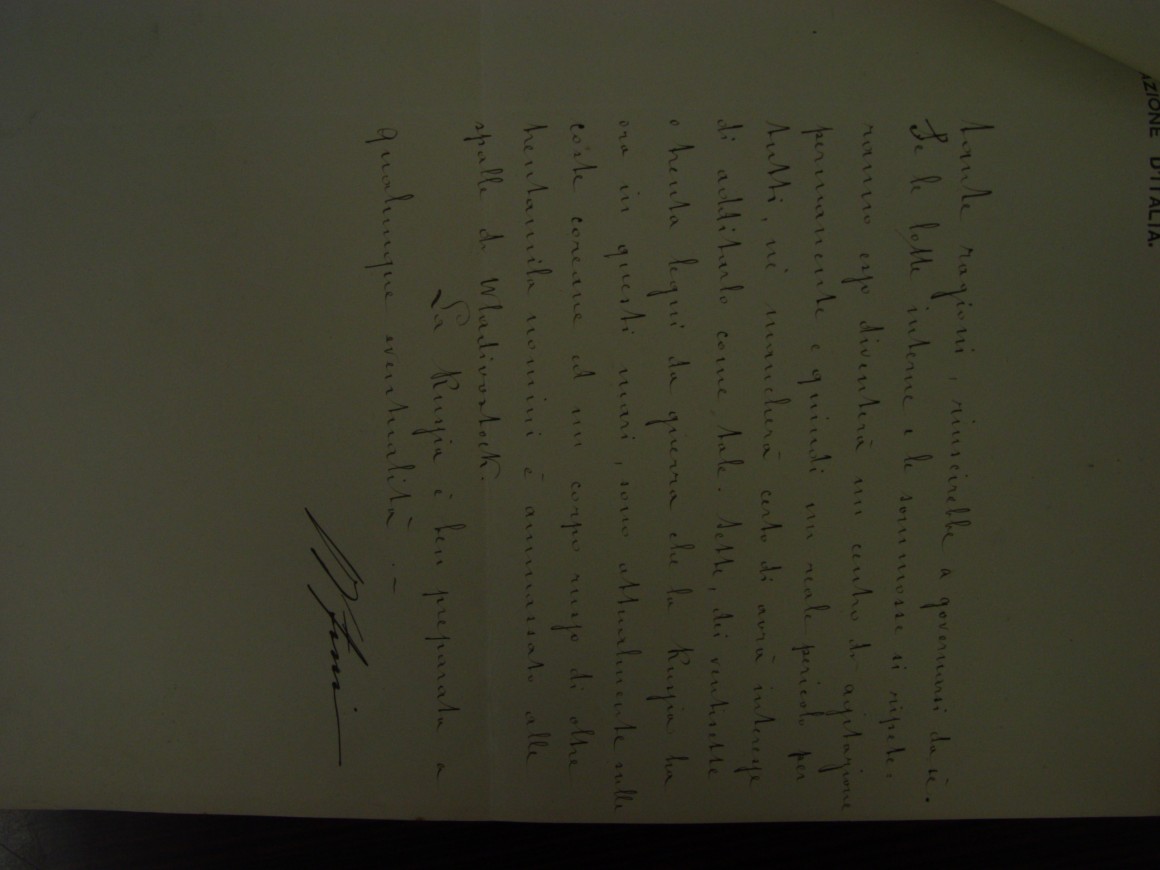 AZIONE D'ITALIA.
tante ragioni, riuscirebbe a governarsi da sè.
Se le lotte interne e le sommosse si ripete-
ranno esso diventerà un centro di agitazione
permanente e quindi un reale pericolo per
tutti, nè mancherà certo di avrà interesse
di additarlo come tale. Sette, dei ventisette
o trenta legni da guerra che la Russia ha
ora in questi mari, sono attualmente sulle
coste coreane ed un corpo russo di oltre
trentamila uomini è ammassato alle
spalle di Wladivostock.
La Russia è ben preparata a
qualunque eventualità.-